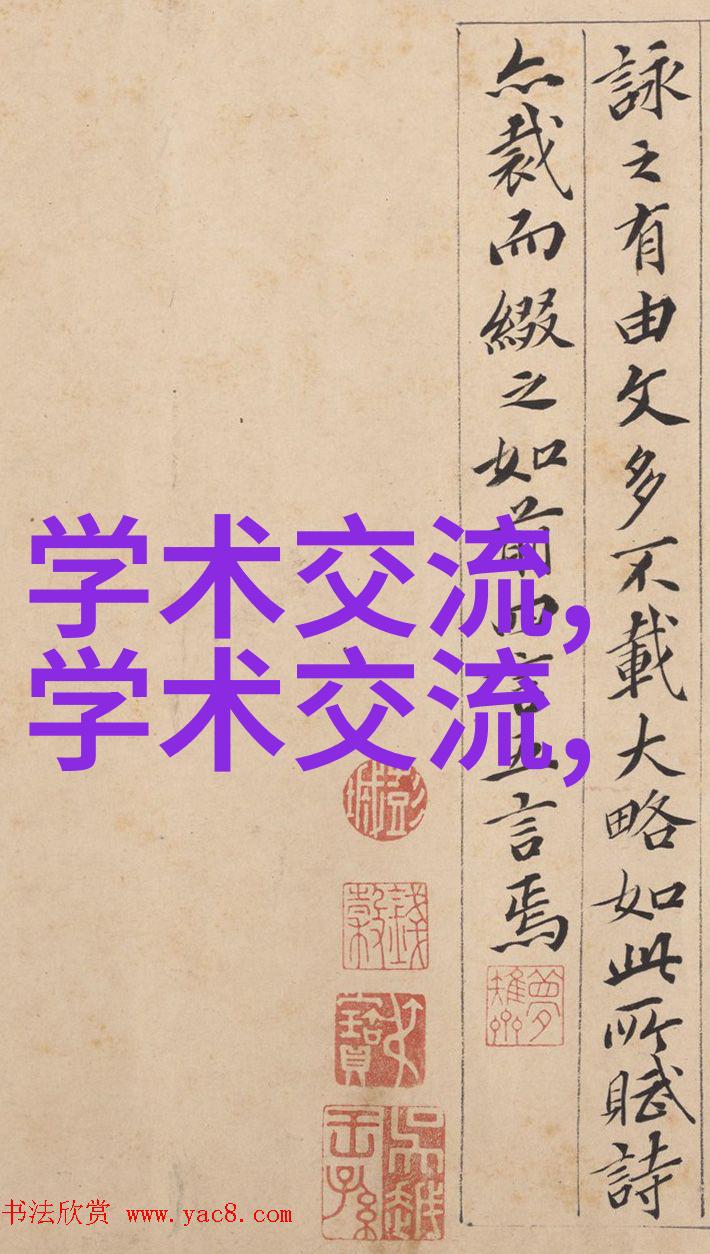 詠之有由文多不載大略如此所賦詩
亦裁而綴之如前四言五言焉
学术交流,
学术交流,
书法欣赏 www.yac8.com